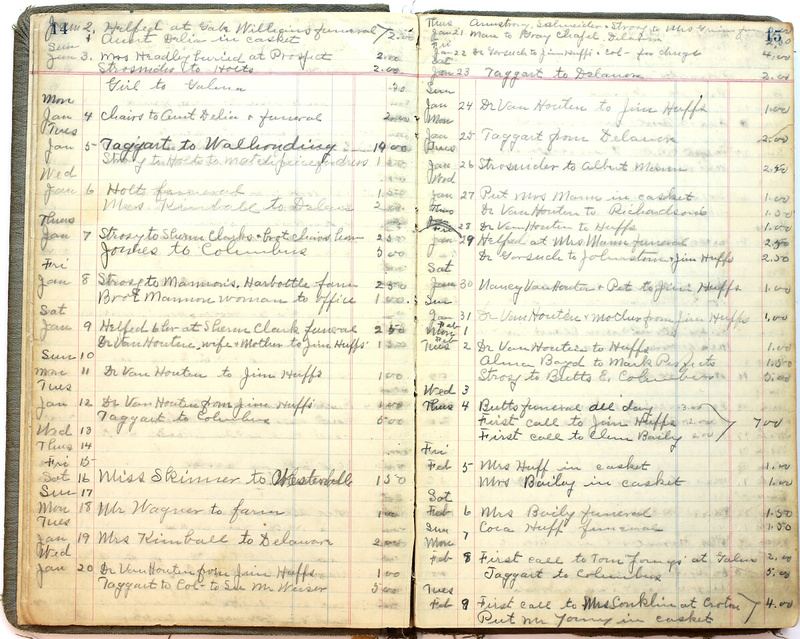 14
Jan 2. Helped at Gabe Williams funeral
Sun + Aunt Delia in casket 2.00
Jan 3. Mrs Headley buried at Prospect 2.00
Strosnider to Holts 2.00
Girl to Galena
Mon
Jan 4 Chairs to Aunt Delia + funeral 2.00
Tues
Jan 5 Taggart to Walhonding 14 00
Strosy to Holts to
Wed
Jan 6 Holt funeral
Mrs. Kimball to
Thurs
Jan 7 Strosy to Sherm Clarks + brot chairs home 2 50
to Columbus 5 00
Fri
Jan 8 Strosy to Mannons, Harbottle farm 2 50
Brot Mannon woman to office 1 00
Sat
Jan 9 Helped 6 hr at Sherm Clark funeral 2 50
Dr Van Houten, wife + Mother to Jim Huffs
Sun 10
Mon 11 Dr Van Houten to Jim Huffs 1 00
Tues
Jan 12 Dr Van Houten from Jim Huffs 1 00
Taggart to Columbus 5 00
Wed 13
Thus 14
Fri 15
Sat 16 Miss Skinner to Westerville 1 50
Sun 17
Mon 18 Mr Wagner to farm 1 00
Tues
Jan 19 Mrs Kimball to Delaware 2 00
Wed
Jan 20 Dr Van Houten from Jim Huffs 1 00
Taggart to Col - to See Mr Weiser 5 00
15
Thus Armstrong, Schneider + Strosy to Mrs
Jan 21 Mann to Bray Chapel,
Fri
Jan 22 Dr Vorsuch to Jim Huffs + Col - for 4.00
Sat
Jan 23 Taggart to Delaware 2.00
Sun
Jan 24 Dr Van Houten to Jim Huffs 1.00
Mon
Jan 25 Taggart from Delaware 2.00
Jan 26 Strosnider to Albert Manns 2.50
Wed
Jan 27 Put Mrs Mann in casket 1.00
Thus Dr Van Houten to Richardson's 1.50
28 Dr Van Houten to Huffs 1.00
Jan 29 Helped at Mrs Mann funeral 2.50
Dr Vorsuch to Johnstown + Jim Huffs 2.50
Sat
Jan 30 Nancy Van Houten + Pet to Jim Huffs 1.00
Sun
Jan 31 Dr Van Houten + Mother from Jim Huffs 1.00
Feb
Mon 1
Feb
Tues 2 Dr Van Houten to Huffs 1.00
Alma Boyd to Mark 1.50
Strosy to Butts E. Columbus 5.00
Wed 3
Thus 4 Butts funeral all day 3.00
First call to Jim Huffs 2.00 7 00
First call to Clem Baily 2.00
Fri
Feb 5 Mrs Huff in casket 1.00
Mrs Baily in casket 1.00
Sat
Feb 6 Mrs Baily funeral 1.50
Sun Coca Huff funeral 1.50
Mon 7
Feb 8 First call to Tom at Galena 2.00
Taggart to Columbus 5.00
Tues
Feb 9 First call to Mrs Conklin at Croton 4.00
Put Mr Young in casket